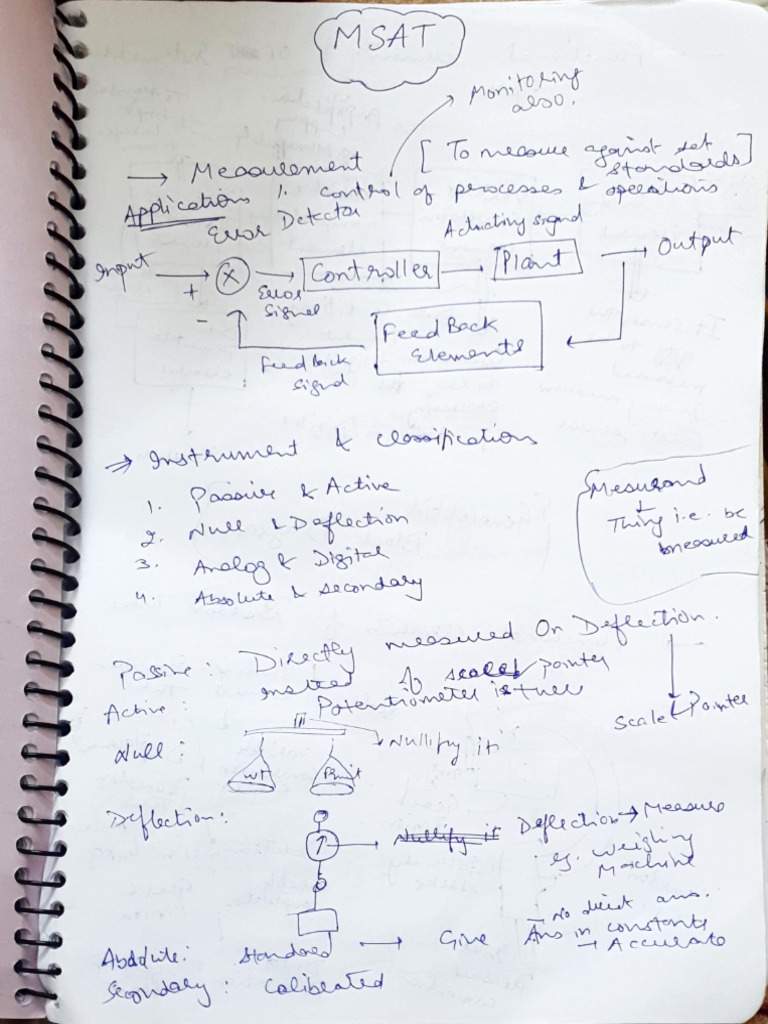 MSAT
Monitoring
also.
→ Measurement [To measure against set
standards]
Applications 1. control of processes & operations.
Error Detector
Actuating signal
Input → + X → Controller → Plant → Output
Error
Signal
-
FeedBack
Elements
FeedBack
Signal
⇒ Instrument & classifications
1. Passive & Active
2. Null & Deflection
3. Analog & Digital
4. Absolute & secondary
Mesurand
↓
Thing i.e. be
measured
Passive: Directly measured On Deflection.
Active: instead of scale pointer
Potentiometer is there
Scale & Pointer
Null: wt
Nullify it
Deflection: → Nullify it Deflection → Measure
eg. Weighing
Machine
Absolute: Standard → Give – No direct ans.
Ans in constants
→ Accurate
Secondary: Caliberated